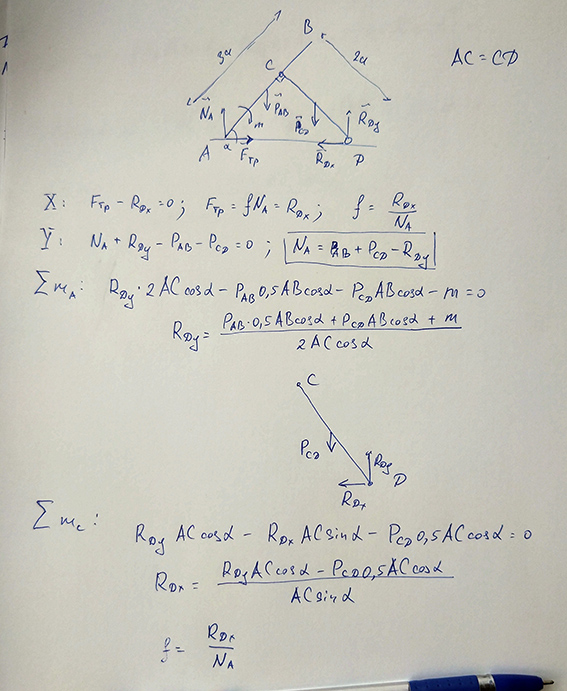 B
3a
2a
AC = CD
C
N_A
P_AB
P_CD
R_Dy
m
A
α
F_тр
R_Dx
D
X: F_тр − R_Dx = 0 ; F_тр = fN_A = R_Dx ; f = R_Dx / N_A
Y: N_A + R_Dy − P_AB − P_CD = 0 ; N_A = P_AB + P_CD − R_Dy
Σ m_A: R_Dy · 2AC cosα − P_AB 0,5AB cosα − P_CD AB cosα − m = 0
R_Dy = P_AB · 0,5AB cosα + P_CD AB cosα + m / 2AC cosα
C
P_CD
R_Dy
D
R_Dx
Σ m_C: R_Dy AC cosα − R_Dx AC sinα − P_CD 0,5AC cosα = 0
R_Dx = R_Dy AC cosα − P_CD 0,5AC cosα / AC sinα
f = R_Dx / N_A